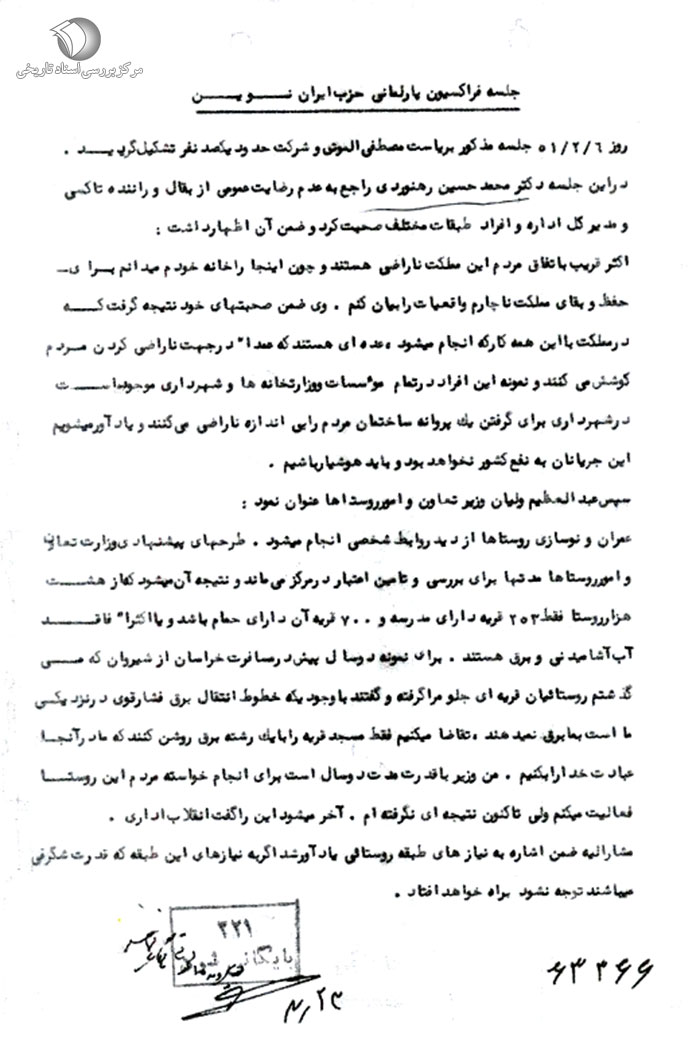 مرکز بررسی اسناد تاریخی
جلسه فراکسیون پارلمانی حزب ایران نــویــن
روز ۵۱/۲/۶ جلسه مذکور بریاست مصطفی الموتی و شرکت حدود یکصد نفر تشکیل گردیــد .
در این جلسه دکتر محمد حسین رهنوردی راجع به عدم رضایت عمومی از بقال و راننده تاکسی
و مدیر کل اداره و افراد طبقات مختلف صحبت کرد و ضمن آن اظهار داشت :
اکثر قریب باتفاق مردم این مملکت ناراضی هستند و چون اینجا را خانه خودم میدانم بــرای
حفظ و بقای مملکت ناچارم واقعیات را بیان کنم . وی ضمن صحبتهای خود نتیجه گرفت کــه
در مملکت با این همه کار که انجام میشود ، عده ای هستند که عمدا" در جهت ناراضی کردن مــردم
کوشش می کنند و نمونه این افراد در تمام مؤسسات و وزارتخانه ها و شهرداری موجود اســت
در شهرداری برای گرفتن یك پروانه ساختمان مردم را بی اندازه ناراضی می کنند و یادآور میشویم
این جریانان به نفع کشور نخواهد بود و باید هوشیار باشیم .
سپس عبدالعظیم ولیان وزیر تعاون و امور روستاها عنوان نمود :
عمران و نوسازی روستاها از دید روابط شخصی انجام میشود . طرحهای پیشنهادی وزارت تعاون
و امور روستاها مدتها برای بررسی و تامین اعتبار در مرکز می ماند و نتیجه آن میشود که از هشــت
هزار روستا فقط ۲۵۳ قریه دارای مدرسه و ۷۰۰ قریه آن دارای حمام باشد و یا اکثرا" فاقــد
آب آشامیدنی و برق هستند . برای نمونه دو سال پیش در مسافرت خراسان از شیروان که مــی
گذشتم روستائیان قریه ای جلو مرا گرفته و گفتند با وجودیکه خطوط انتقال برق فشار قوی در نزدیکی
ما است بما برق نمیدهند ، تقاضا میکنیم فقط مسجد قریه را با یك رشته برق روشن کنند که ما در آنجا
عبادت خدا را بکنیم . من وزیر با قدرت مدت دو سال است برای انجام خواسته مردم این روستــا
فعالیت میکنم ولی تاکنون نتیجه ای نگرفته ام . آخر میشود این را گفت انقلاب اداری .
مشارالیه ضمن اشاره به نیاز های طبقه روستائی یادآور شد اگر به نیازهای این طبقه که قدرت شگرفی
میباشند توجه نشود براه خواهد افتاد .
۳۲۱
بایگانی شود
۶۳۳۶۶
۳٫۲۳